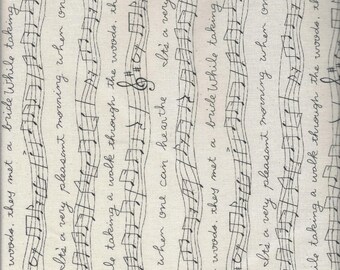 woods, they met a bride While taking
It's a very pleasant morning when one
le taking a walk through the woods, th
when one can hear the It's a very
woods, they met a bride While taking
It's a very pleasant morning when on
le taking a walk through the woods, the